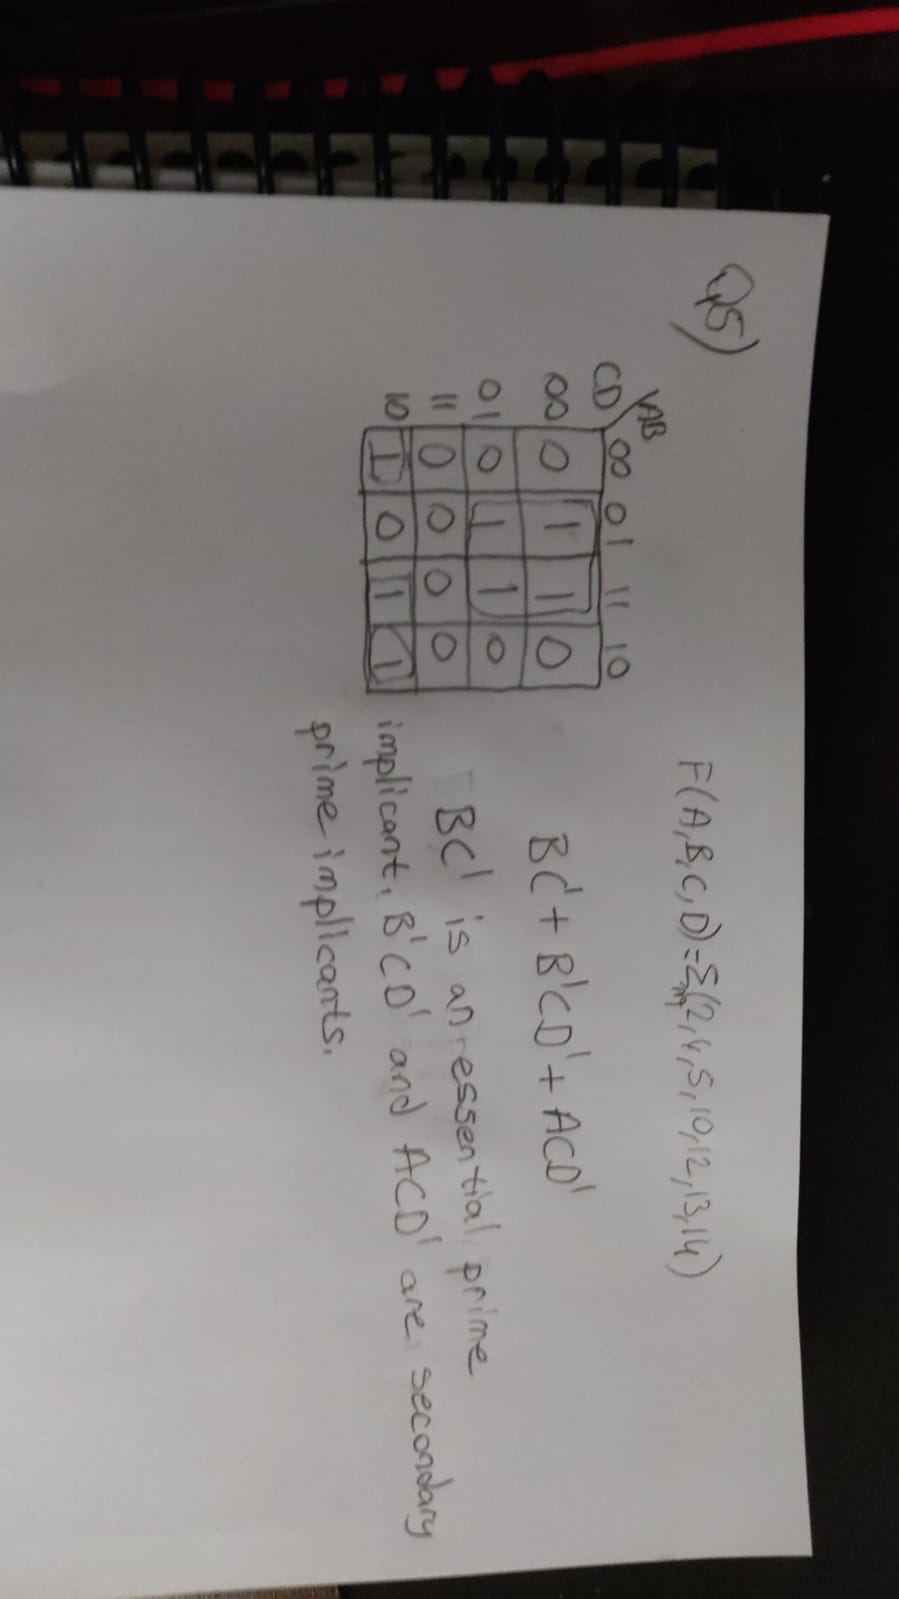 Q5)
F(A,B,C,D)=Σm(2,4,5,10,12,13,14)
CD\AB 00 01 11 10
00 0 1 1 0
01 0 1 1 0
11 0 0 0 0
10 1 0 1 1
BC'+B'CD'+ACD'
BC' is an essential prime
implicant. B'CD' and ACD' are secondary
prime implicants.